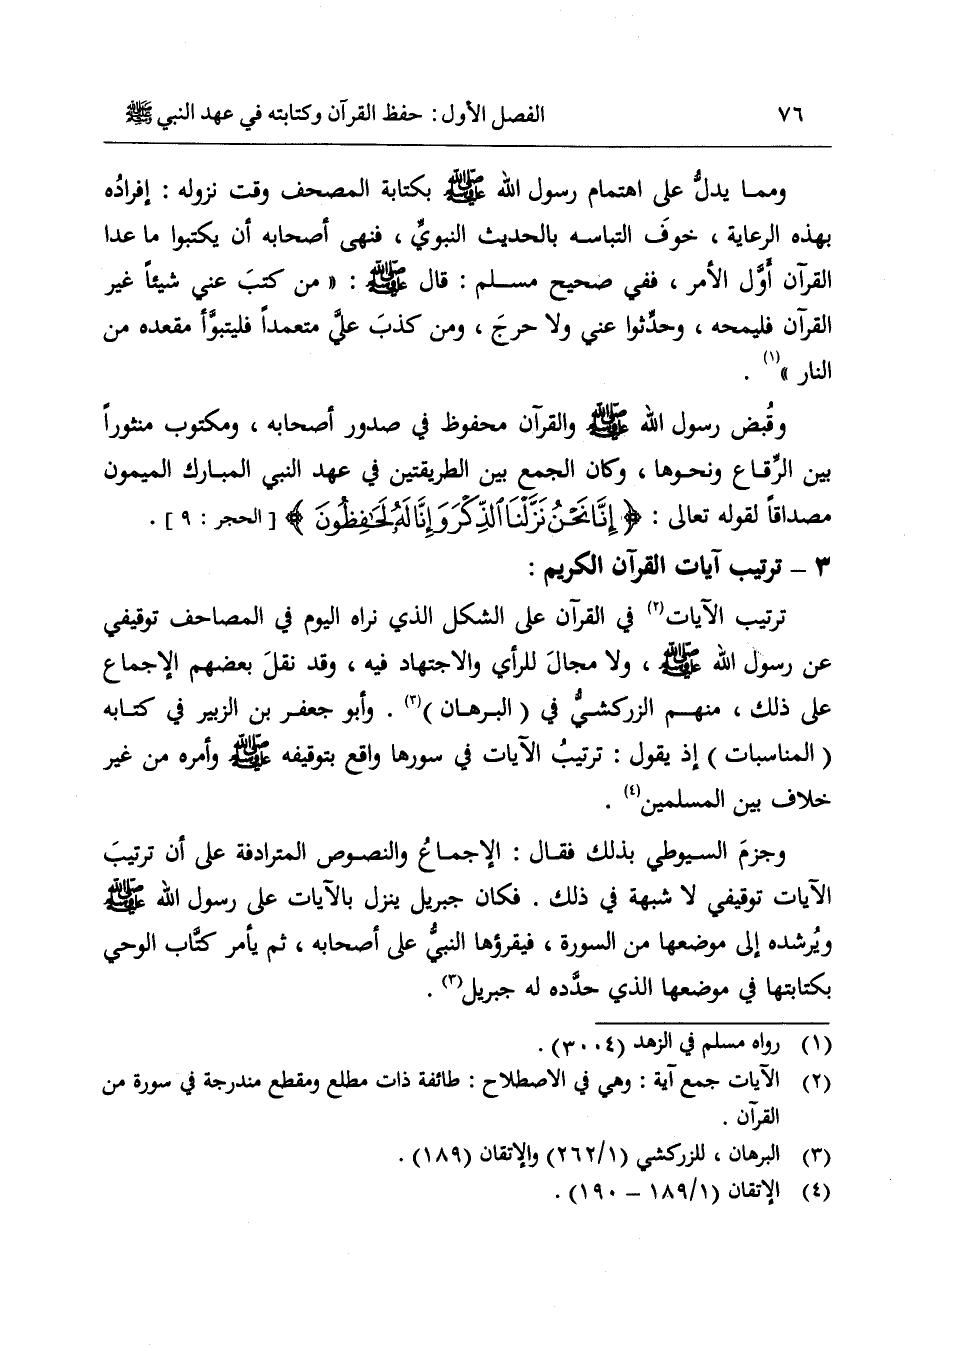 ٧٦ الفصل الأول : حفظ القرآن وكتابته في عهد النبي ﷺ
ومما يدلُّ على اهتمام رسول الله ﷺ بكتابة المصحف وقت نزوله : إفرادُه
بهذه الرعاية ، خوفَ التباسه بالحديث النبويِّ ، فنهى أصحابه أن يكتبوا ما عدا
القرآن أَوَّل الأمر ، ففي صحيح مسلم : قال ﷺ : « من كتبَ عني شيئاً غير
القرآن فليمحه ، وحدِّثوا عني ولا حرجَ ، ومن كذبَ عليَّ متعمداً فليتبوَّأ مقعده من
النار »(١) .
وقُبض رسول الله ﷺ والقرآن محفوظ في صدور أصحابه ، ومكتوب منثوراً
بين الرِّقاع ونحوها ، وكان الجمع بين الطريقتين في عهد النبي المبارك الميمون
مصداقاً لقوله تعالى : ﴿ إِنَّا نَحْنُ نَزَّلْنَا ٱلذِّكْرَ وَإِنَّا لَهُۥ لَحَٰفِظُونَ ﴾ [ الحجر : ٩ ] .
٣ – ترتيب آيات القرآن الكريم :
ترتيب الآيات(٢) في القرآن على الشكل الذي نراه اليوم في المصاحف توقيفي
عن رسول الله ﷺ ، ولا مجالَ للرأي والاجتهاد فيه ، وقد نقلَ بعضهم الإجماع
على ذلك ، منهم الزركشيُّ في ( البرهان )(٣) . وأبو جعفر بن الزبير في كتابه
( المناسبات ) إذ يقول : ترتيبُ الآيات في سورها واقع بتوقيفه ﷺ وأمره من غير
خلاف بين المسلمين(٤) .
وجزمَ السيوطي بذلك فقال : الإجماعُ والنصوص المترادفة على أن ترتيبَ
الآيات توقيفي لا شبهة في ذلك . فكان جبريل ينزل بالآيات على رسول الله ﷺ
ويُرشده إلى موضعها من السورة ، فيقرؤها النبيُّ على أصحابه ، ثم يأمر كتَّاب الوحي
بكتابتها في موضعها الذي حدَّده له جبريل(٣) .
(١) رواه مسلم في الزهد (٣٠٠٤) .
(٢) الآيات جمع آية : وهي في الاصطلاح : طائفة ذات مطلع ومقطع مندرجة في سورة من
القرآن .
(٣) البرهان ، للزركشي (٢٦٢/١) والإتقان (١٨٩) .
(٤) الإتقان (١٨٩/١ – ١٩٠) .